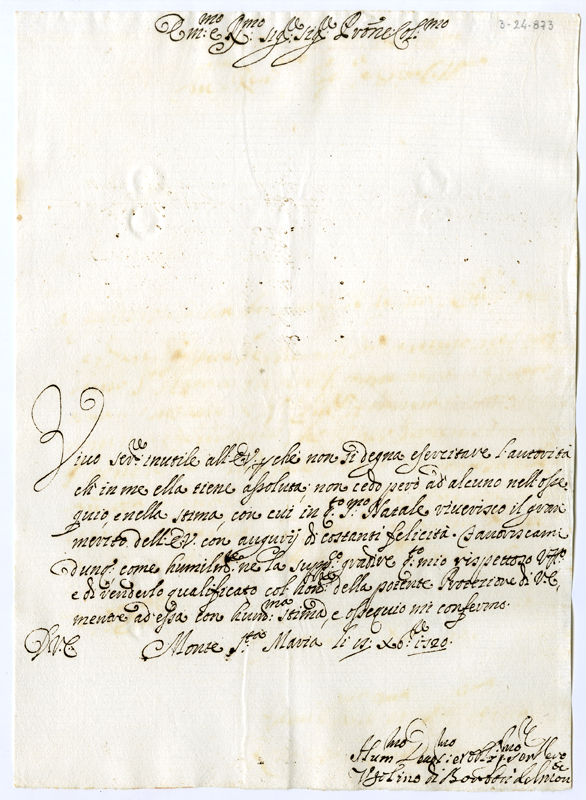 3-24-873
Em:mo e R:mo Sig:re Sig:re Prone Col:mo
Vivo Ser:re inutile all'E.V., che non si degna esercitare l'autorità
ch'in me ella tiene assoluta; non cedo però ad alcuno nell'osse
quio, e nella stima, con cui in q:to S:mo Natale riverisco il gran
merito dell'E.V. con augurij di costanti felicità. Favoriscami
dunq: come humilm:te ne la supp:co gradire q:to mio rispettoso
e di renderlo qualificato col della potente Prottione di V.E.,
mentre ad essa con hum:ma stima, e ossequio mi confermo.
D.V.E. Monte S:ta Maria li 19 Xbre
Hum:mo Dev:mo et Obl:mo Ser:re
Ugolino di Borboni del Mon:te